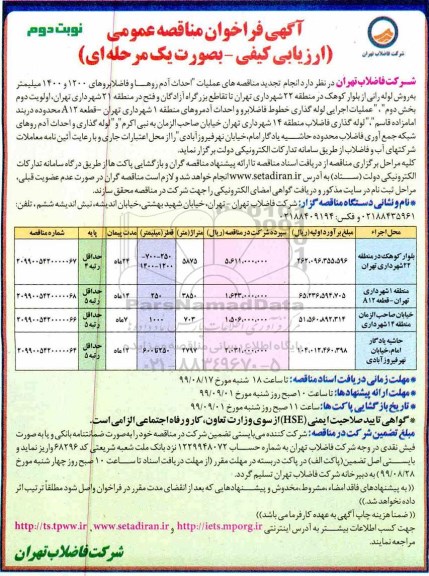 آگهی فراخوان مناقصه عمومی
نوبت دوم
(ارزیابی کیفی - بصورت یک مرحله ای)
شرکت فاضلاب تهران
شرکت فاضلاب تهران در نظر دارد انجام تجدید مناقصه های عملیات "احداث آدم روها و فاضلابروهای ۱۲۰۰ و ۱۴۰۰ میلیمتر
به روش لوله رانی از بلوار کوهک در منطقه ۲۲ شهرداری تهران تا تقاطع بزرگراه آزادگان و فتح در منطقه ۲۱ شهرداری تهران، اولویت دوم
بخش دوم"، "عملیات اجرایی لوله گذاری خطوط فاضلابرو و احداث آدم روهای منطقه ۱ شهرداری تهران - قطعه A12 محدوده دربند
امامزاده قاسم"، "لوله گذاری فاضلاب منطقه ۱۴ شهرداری تهران خیابان صاحب الزمان به نبی اکرم" و "لوله گذاری و احداث آدم روهای
شبکه جمع آوری فاضلاب محدوده حاشیه یادگار امام، خیابان نهر فیروزآبادی" را از محل اعتبارات جاری و با رعایت آئین نامه معاملات
شرکتهای آب و فاضلاب از طریق سامانه تدارکات الکترونیکی دولت برگزار نماید.
کلیه مراحل برگزاری مناقصه از دریافت اسناد مناقصه تا ارائه پیشنهاد مناقصه گران و بازگشایی پاکت ها از طریق درگاه سامانه تدارکات
الکترونیکی دولت (ستاد) به آدرس www.setadiran.ir انجام خواهد شد و لازم است مناقصه گران در صورت عدم عضویت قبلی،
مراحل ثبت نام در سایت مذکور و دریافت گواهی امضای الکترونیکی را جهت شرکت در مناقصه محقق سازند.
* نام و نشانی دستگاه مناقصه گزار: شرکت فاضلاب تهران - تهران، خیابان شهید بهشتی، خیابان اندیشه، نبش اندیشه ششم، تلفن:
۰۲۱۸۸۴۳۵۹۶۱ و فکس: ۰۳۱۸۸۴۰۹۱۹۴
محل اجراء مبلغ برآورد اولیه (ریال) سپرده شرکت در مناقصه (ریال) متراژ (متر) قطر (میلیمتر) مدت پیمان پایه شماره مناقصه
بلوار کوهک در منطقه ۲۲ شهرداری تهران ۲۶۲.۰۹۶.۳۵۵.۵۹۶ ۵.۶۱۱.۰۰۰.۰۰۰ ۵۸۷۵ ۲۴ ماه حداقل
منطقه ۱ شهرداری تهران - قطعه A12 ۶۵.۳۳۶.۵۹۴.۷۰۵ ۱.۶۴۳.۰۰۰.۰۰۰ ۳۸۵۰ ۲۵۰ ۱۲ ماه حداقل رتبه ۵
خیابان صاحب الزمان منطقه ۱۴ شهرداری ۱.۵۰۶.۰۰۰.۰۰۰ ۷۰۳ ۱۰۰۰ ۷ ماه حداقل رتبه ۵
حاشیه یادگار امام، خیابان نهر فیروزآبادی ۲۷۹۷ ۱۲ ماه حداقل رتبه ۵
* مهلت زمانی دریافت اسناد مناقصه: تا ساعت ۱۸ شنبه مورخ ۹۹/۰۸/۱۷
* مهلت ارائه پیشنهادها: تا ساعت ۱۰ صبح روز شنبه مورخ ۹۹/۰۹/۰۱
* تاریخ بازگشایی پاکت ها: ساعت ۱۱ صبح روز شنبه مورخ ۹۹/۰۹/۰۱
* گواهی تایید صلاحیت ایمنی (HSE) از سوی وزارت تعاون، کار و رفاه اجتماعی الزامی است.
مبلغ تضمین شرکت در مناقصه: شرکت کننده می بایستی تضمین شرکت در مناقصه خود را به صورت ضمانتنامه بانکی و یا به صورت
فیش نقدی در وجه شرکت فاضلاب تهران به شماره حساب ۱۲۲۹۹۴۸۰۷۲ نزد بانک ملت شعبه شریعتی کد ۶۸۲۹۶ واریز نماید و
بایستی اصل تضمین (پاکت الف) در پاکت دربسته در مهلت مقرر (از مهلت دریافت اسناد تا ساعت ۱۰ صبح روز چهار شنبه مورخ
۹۹/۰۸/۲۸) به دبیرخانه شرکت فاضلاب تهران تسلیم گردد.
(( به پیشنهادهای فاقد امضاء، مشروط، مخدوش و پیشنهادهایی که بعد از انقضای مدت مقرر در فراخوان واصل شود مطلقاً ترتیب اثر
داده نخواهد شد.))
(( ضمناً هزینه چاپ آگهی به عهده کارفرما می باشد))
جهت کسب اطلاعات بیشتر به آدرس اینترنتی http://iets.mporg.ir و www.setadiran.ir و http://ts.tpww.ir
مراجعه نمایند.
شرکت فاضلاب تهران